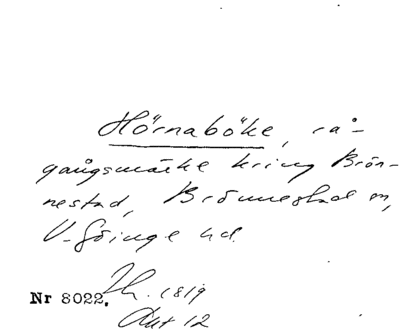 Hörnaböke, rå-
gångsmärke kring Brön-
nestad, Brönnestad sn,
V. Göinge hd.
Nr 8022. Th. 1819
Akt 12